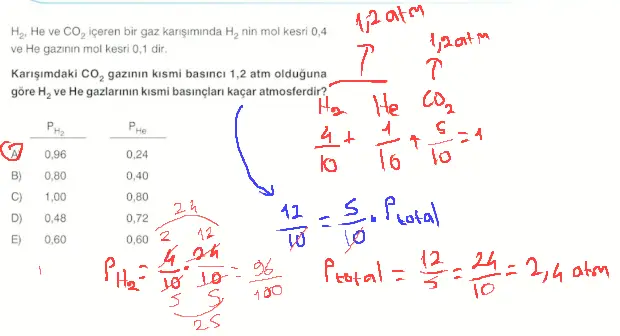 H₂, He ve CO₂ içeren bir gaz karışımında H₂ nin mol kesri 0,4
ve He gazının mol kesri 0,1 dir.
Karışımdaki CO₂ gazının kısmi basıncı 1,2 atm olduğuna
göre H₂ ve He gazlarının kısmi basınçları kaçar atmosferdir?
P_H₂ P_He
A) 0,96 0,24
B) 0,80 0,40
C) 1,00 0,80
D) 0,48 0,72
E) 0,60 0,60
1,2 atm
1,2 atm
H₂ He CO₂
4/10 + 1/10 + 5/10 = 1
12/10 = 5/10 . Ptotal
24
2 12
P_H₂ = 4/10 . 24/10 = 96/100
5 5
25
Ptotal = 12/5 = 24/10 = 2,4 atm